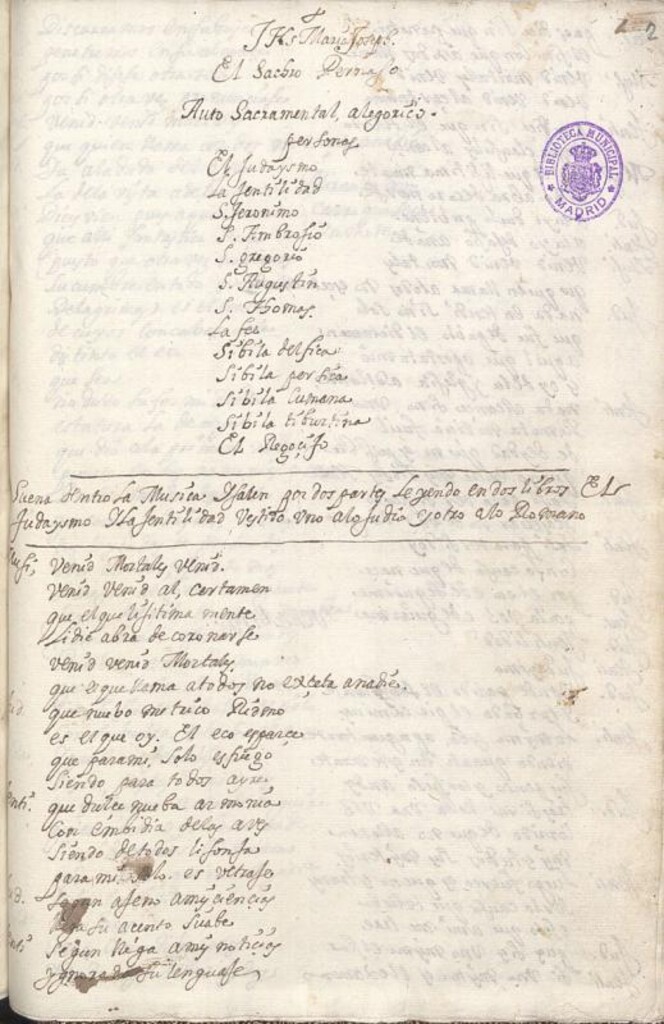 2
JHs Maria Joseph.
El Sacro Pernaso
Auto Sacramental, alegorico.
personas
El Judaysmo
La Jentilidad
S. Jeronimo
S. Ambrosio
S. gregorio
S. Augustin
S. Thomas.
La fee
Sibila delfica
Sibila persica
Sibila Cumana
Sibila tiburtina
El Regoçijo
BIBLIOTECA MUNICIPAL
MADRID
Suena dentro La Musica Ysalen por dos partes Leyendo en dos libros El
Judaysmo YLa Jentilidad, Vestido Uno alo Judio y otro alo Romano
Musi, Venid Mortales Venid.
Venid Venid al, certamen
que, el que lijitima mente
Lidie abra de coronarse
Venid venid Mortales,
que el que llama atodos no exceta anadie.
que nuebo metrico Ridmo
es el que oy. El eco esparce
que parami, Solo es fuego
Siendo para todos ayre
que dulce nueba armonia
Con embidia delas aves
Siendo detodos lisonja
para mi Solo. es Vltraje
Segun ageno amis ciencias
su acento Suabe
Segun Niega amis noticias
ygnorado Su lenguaje